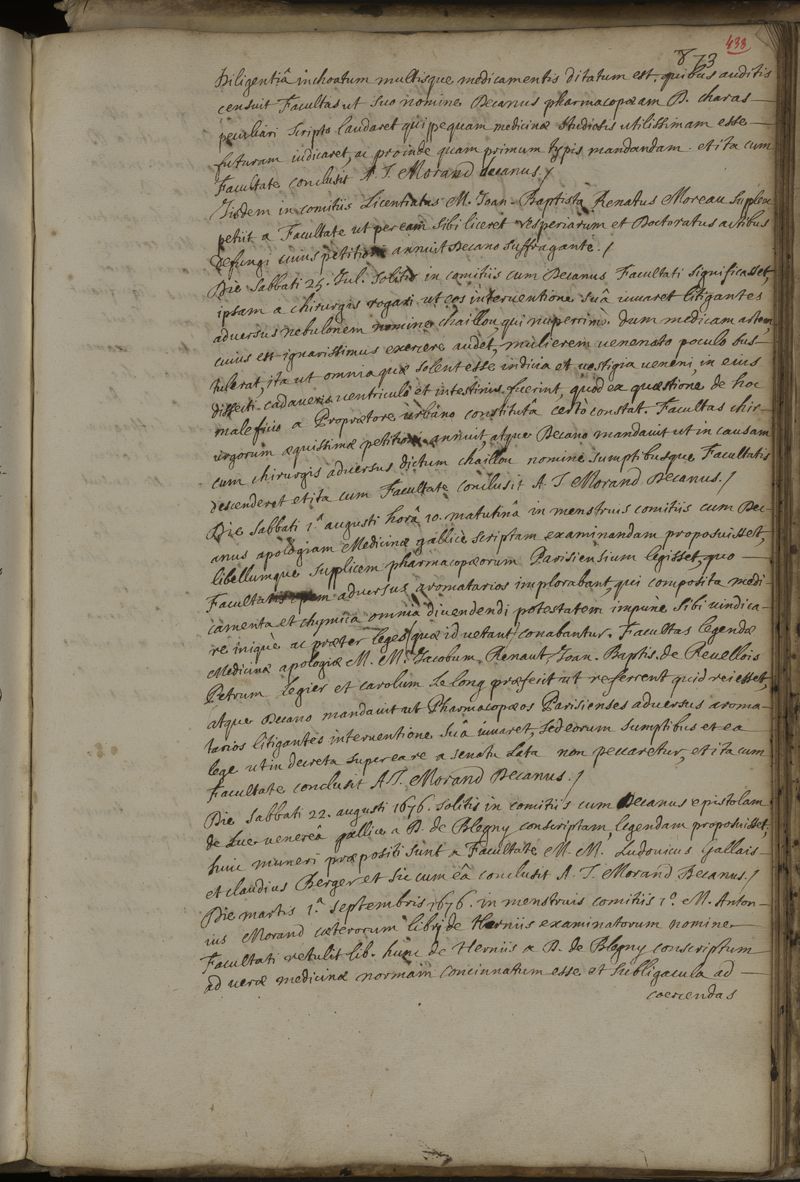 433
873
Diligentiâ inchoatum multisque medicamentis ditatum est. quibus auditis
censuit Facultas ut suo nomine Decanus pharmacopæam D. charas
peculiari scripto laudaret quippe quam medicinæ studiosis utilissimam esse
futuram iudicaret, ac proinde quam primum typis mandandam. et ita cum
Facultate conclusit A. J. Morand decanus./
Iisdem in comitiis Licentiatus M. Joan-Baptista Renatus Moreau supplex
petiit a Facultate ut per eam sibi liceret vesperiarum et Doctoratus actibus
defungi cuius petitioni annuit Decano suffragante./
Die Sabbati 25. Jul. solitis in comitiis cum Decanus Facultati significasset,
ipsam a chirurgis rogari ut eos interventione suâ iuuaret litigantes
aduersus nebulonem nomine chaillou, qui nuperrimè dum medicam artem,
cuius est ignarissimus exercere audet, mulierem uenenato poculo sus-
tulerat, ita ut omnia quæ solent esse indicia et uestigia ueneni, in eius
dissecti cadaueris uentriculo et intestinis fuerint, quod ex quæstione de hoc
maleficio a Proprætore urbano constitutâ certò constat. Facultas chir-
urgorum æquissimæ petitioni annuit, atque Decano mandauit ut in causam
cum chirurgis aduersus dictum chaillou nomine sumptibusque Facultatis
descenderet et ita cum Facultate conclusit A. J Morand Decanus./
Die Sabbati 1.ª augusti horâ 10. matutinâ in menstruis comitiis cum Dec-
anus apologiam Medicinæ gallice scriptam examinandam proposuisset,
libellumque supplicem pharmacopæorum Parisiensium legisset, quo
Facultatis opem aduersus aromatarios implorabant, qui composita medi-
camenta et chymica omnia diuendendi potestatem impune sibi uindica-
re iniquè ac præter leges (quæ id uetant) conabantur. Facultas legendæ
Medicinæ apologiæ M. M. Jacobum Renaut, Joan. Baptis. de Reuellois
Petrum Legier et carolum Le long præfecit ut referrent quid rei esset,
atque Decano mandauit ut Pharmacopæos Parisienses aduersus aroma-
tarios litigantes interuentione suâ iuuaret, sed eorum sumptibus et ea
lege ut in decreta super ea re a senatu lata non peccaretur, et ita cum
Facultate conclusit A. J. Morand Decanus./
Die Sabbati 22. augusti 1676. solitis in comitiis cum Decanus epistolam
de Lue uenereâ gallice a D. de Blegny conscriptam, legendam proposuisset,
huic muneri præpositi sunt a Facultate M. M. Ludouicus Gallais
et claudius Berger et sic cum eâ conclusit A. J. Morand Decanus./
Die martis 1.ª septembris 1676. in menstruis comitiis 1.º M. Anton-
ius Morand cæterorum libri de Herniis examinatorum nomine
Facultati retulit lib. hunc de Herniis a D. de Blegny conscriptum
ad ueræ medicinæ normam concinnatum esse et subligacula ad
coercendas